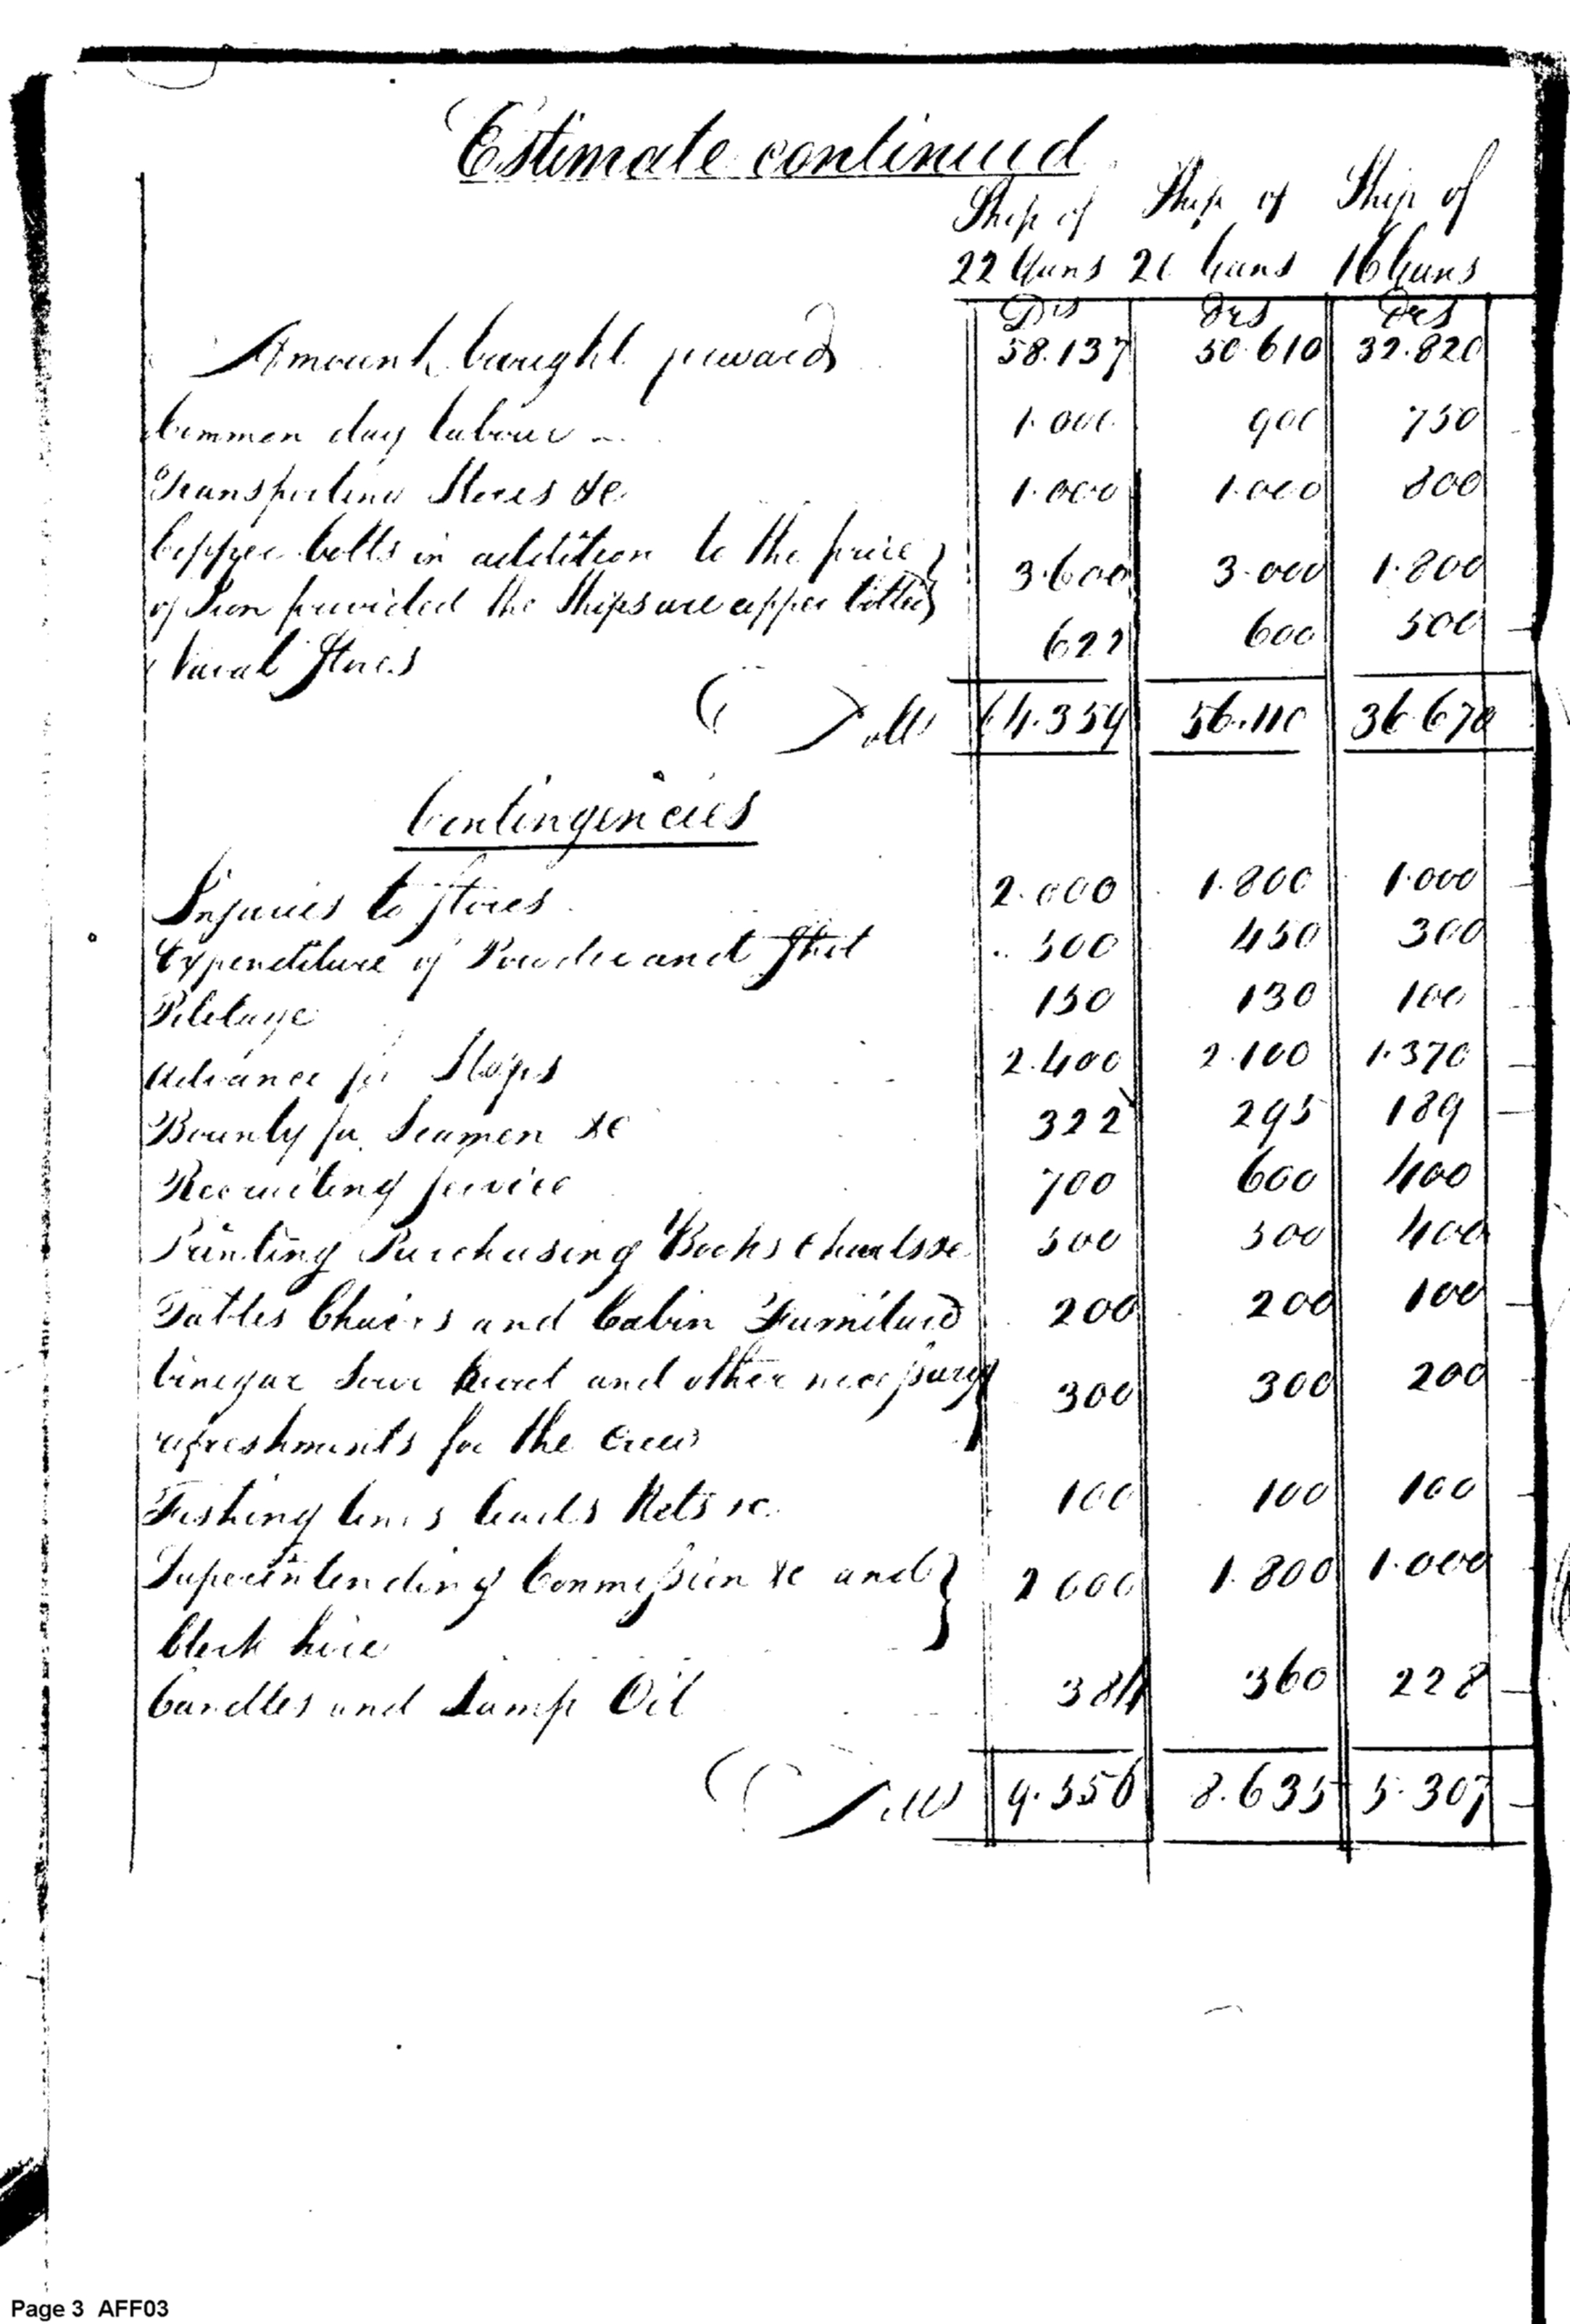 Estimate continued
Ship of Ship of Ship of
22 Guns 20 Guns 16 Guns
Drs Drs Drs
Amount brought forward 58.137 50.610 32.820
Common day labour 1.000 900 750
Transporting Stores &c 1.000 1.000 800
Copper bolts in addition to the price
of Iron provided the Ships are copper bolted 3.600 3.000 1.800
Naval Stores 622 600 500
Dolls 64.359 56.110 36.670
Contingencies
Injuries to Stores 2.000 1.800 1.000
Expenditure of Powder and Shot 500 450 300
Pilotage 150 130 100
Advance for Slops 2.400 2.100 1.370
Bounty for Seamen &c 322 295 189
Recruiting Service 700 600 400
Printing Purchasing Books Charts &c 500 500 400
Tables Chairs and Cabin Furniture 200 200 100
Vinegar Sour Krout and other necessary
refreshments for the crew 300 300 200
Fishing lines leads Nets &c. 100 100 100
Superintending Commission &c and
Clerk hire 2000 1.800 1.000
Candles and Lamp Oil 384 360 228
Dolls 9.556 8.635 5.307
Page 3 AFF03